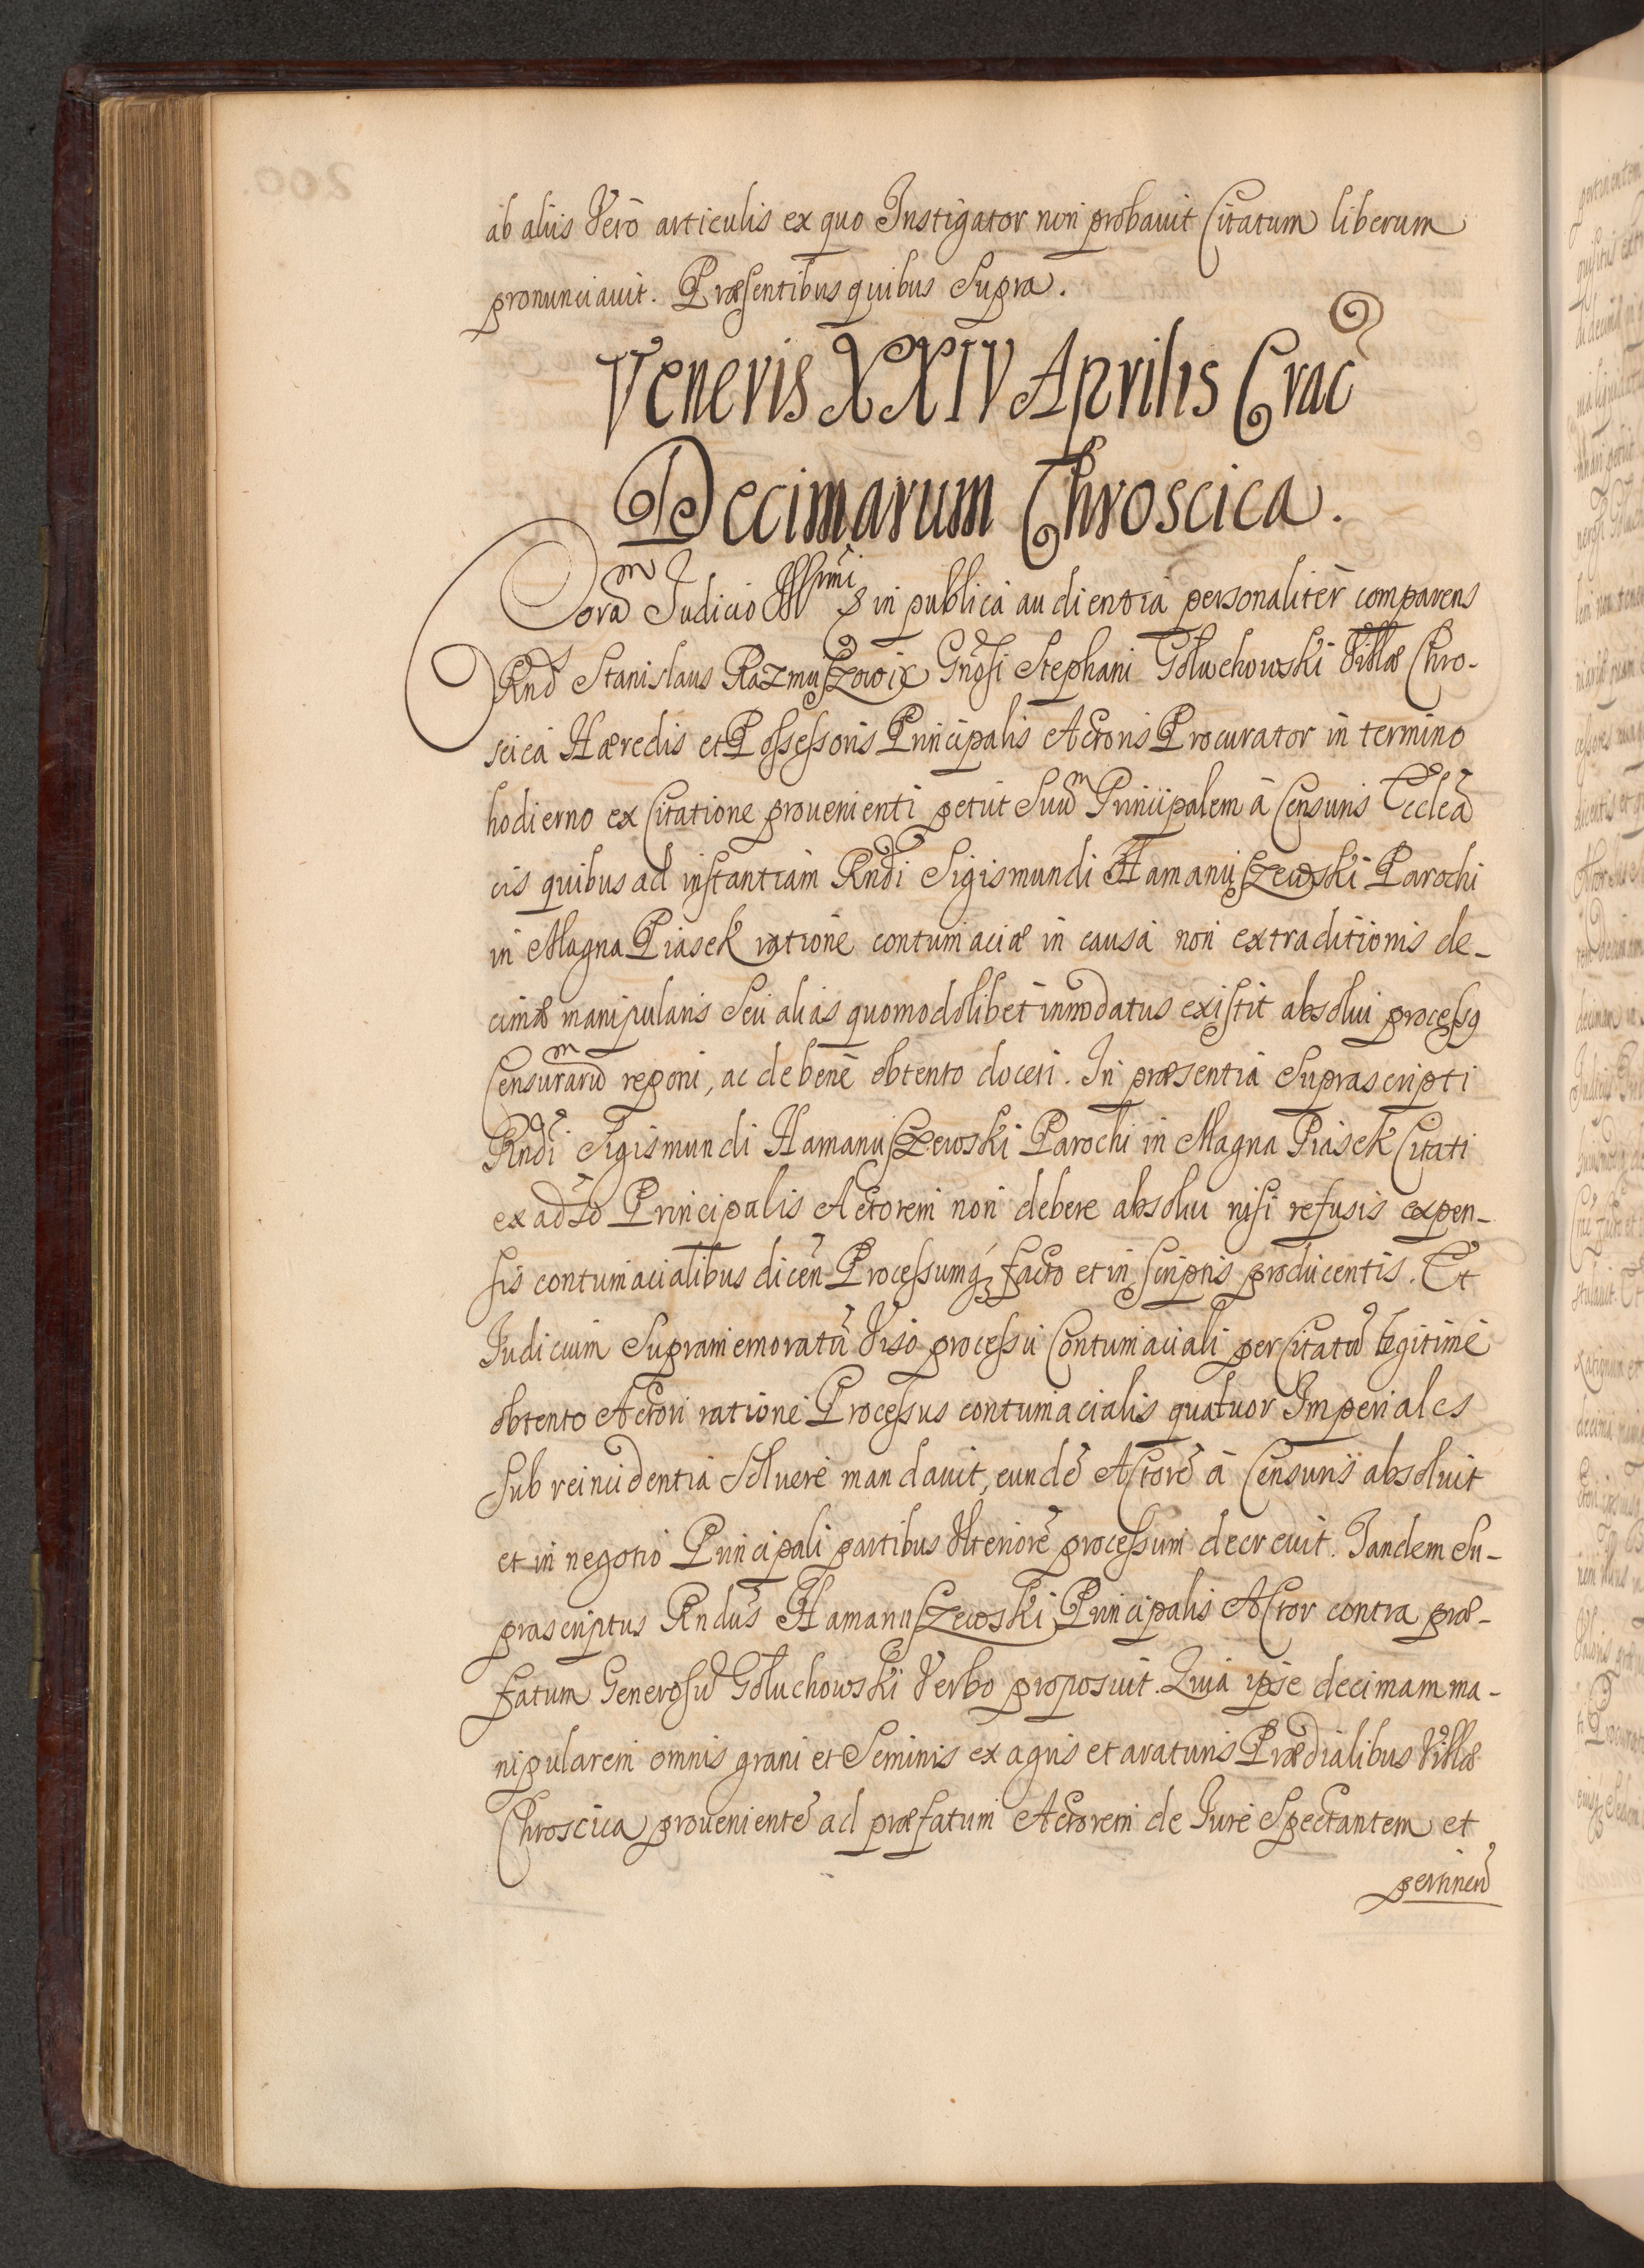 ab aliis Vero articulis ex quo Instigator non probauit Citatum liberum
pronunciauit. Præsentibus quibus supra.
Veneris XXIV Aprilis Crac
Decimarum Chroscica.
Coram Judicio Illmi in publica audientia personaliter comparens
Rnd Stanislaus Razmuszowic Gnosi Stephani Gołuchowski Villæ Chro-
scica Hæredis et Possessoris Principalis Actoris Procurator in termino
hodierno ex Citatione prouenienti petiit Suum Principalem â Censuris Eccleã
cis quibus ad instantiam Rndi Sigismundi Hamanuszewski Parochi
in Magna Piasek ratione contumaciæ in causa non extraditionis de-
cimæ manipularis Seu alias quomodolibet innodatus existit absolui processq
Censurarum reponi, ac de bene obtento doceri. In præsentia Suprascripti
Rndi Sigismundi Hamanuszewski Parochi in Magna Piasek Citati
ex adso Principalis Actorem non debere absolui nisi refusis expen-
sis contumacialibus dicen Processumq facto et in scriptis producentis. Et
Judicium Supramemoratũ Viso processu Contumaciali per Citatũ legitime
obtento Actori ratione Processus contumacialis quatuor Imperiales
sub reincidentia Soluere mandauit, eundẽ Actorẽ â Censuris absoluit
et in negotio Principali partibus Vlteriorẽ processum decreuit. Tandem Su-
prascriptus Rndus Hamanuszewski Principalis Actor contra præ-
fatum Generosũ Gołuchowski Verbo proposuit. Quia ipse decimam ma-
nipularem omnis grani et Seminis ex agris et araturis Prædialibus Villæ
Chroscica prouenientẽ ad præfatum Actorem de Jure Spectantem et
pertinen